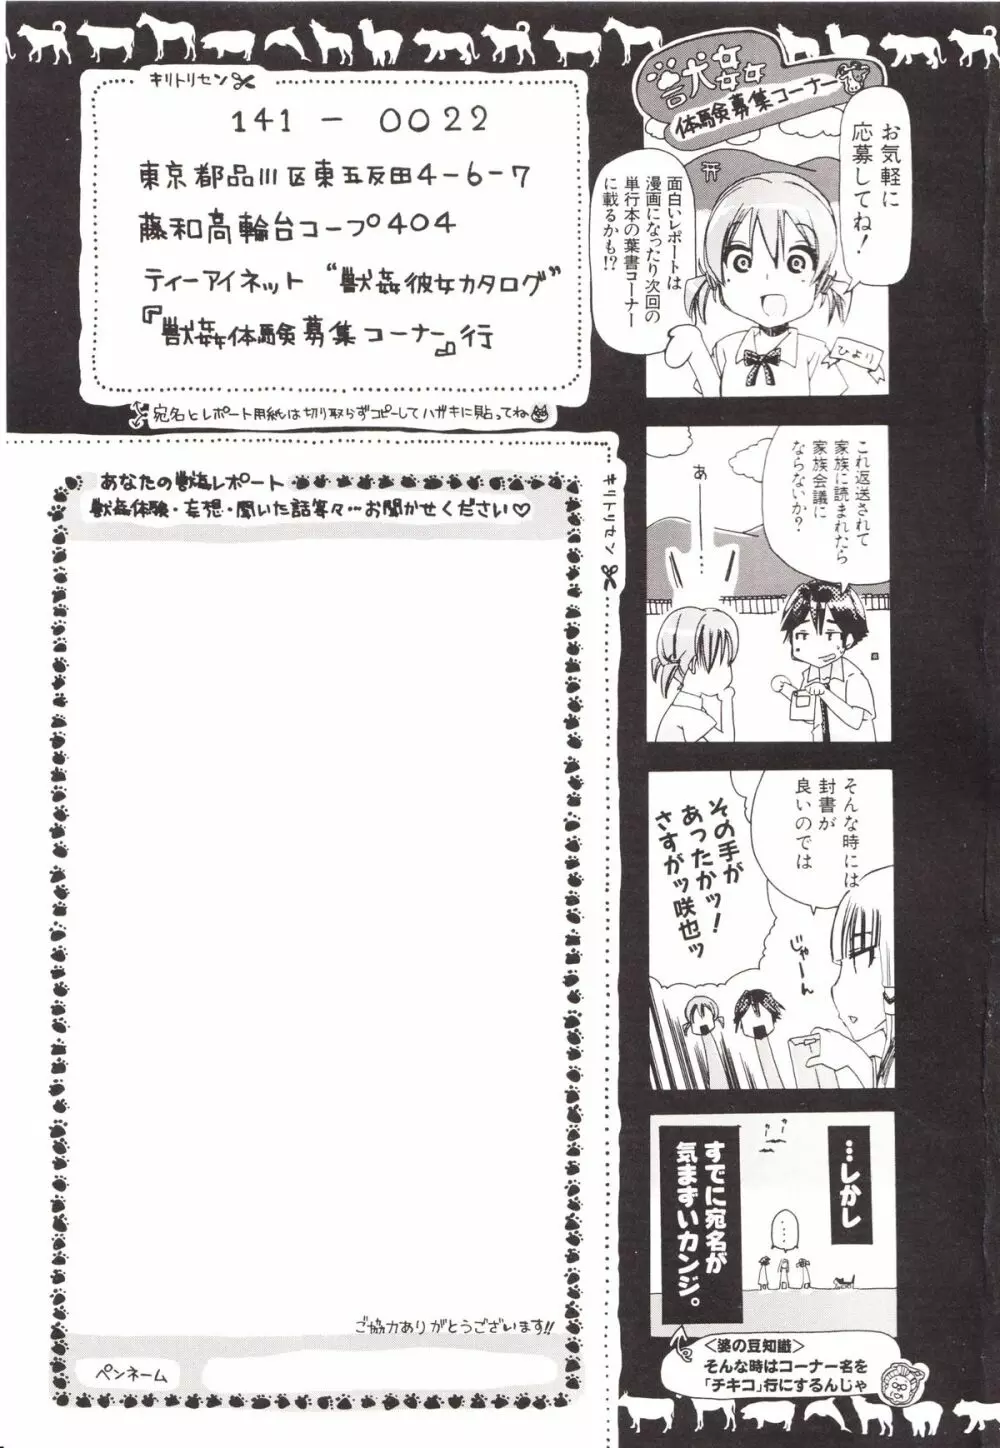 獣姦
体験募集コーナー
お気軽に
応募してね！
面白いレポートは
漫画になったり次回の
単行本の葉書コーナー
に載るかも!?
ひより
これ返送されて
家族に読まれたら
家族会議に
ならないか？
あ
そんな時には
封書が
良いのでは
じゃーん
その手が
あったかッ！
さすがッ咲也ッ
…しかし
……
すでに宛名が
気まずいカンジ。
＜婆の豆知識＞
そんな時はコーナー名を
「チキコ」行にするんじゃ
キリトリセン
141-0022
東京都品川区東五反田4-6-7
藤和高輪台コープ404
ティーアイネット “獣姦彼女カタログ”
『獣姦体験募集コーナー』行
宛名とレポート用紙は切り取らずコピーしてハガキに貼ってね
キリトリセン
あなたの獣姦レポート
獣姦体験・妄想・聞いた話等々…お聞かせください♡
ご協力ありがとうございます!!
ペンネーム